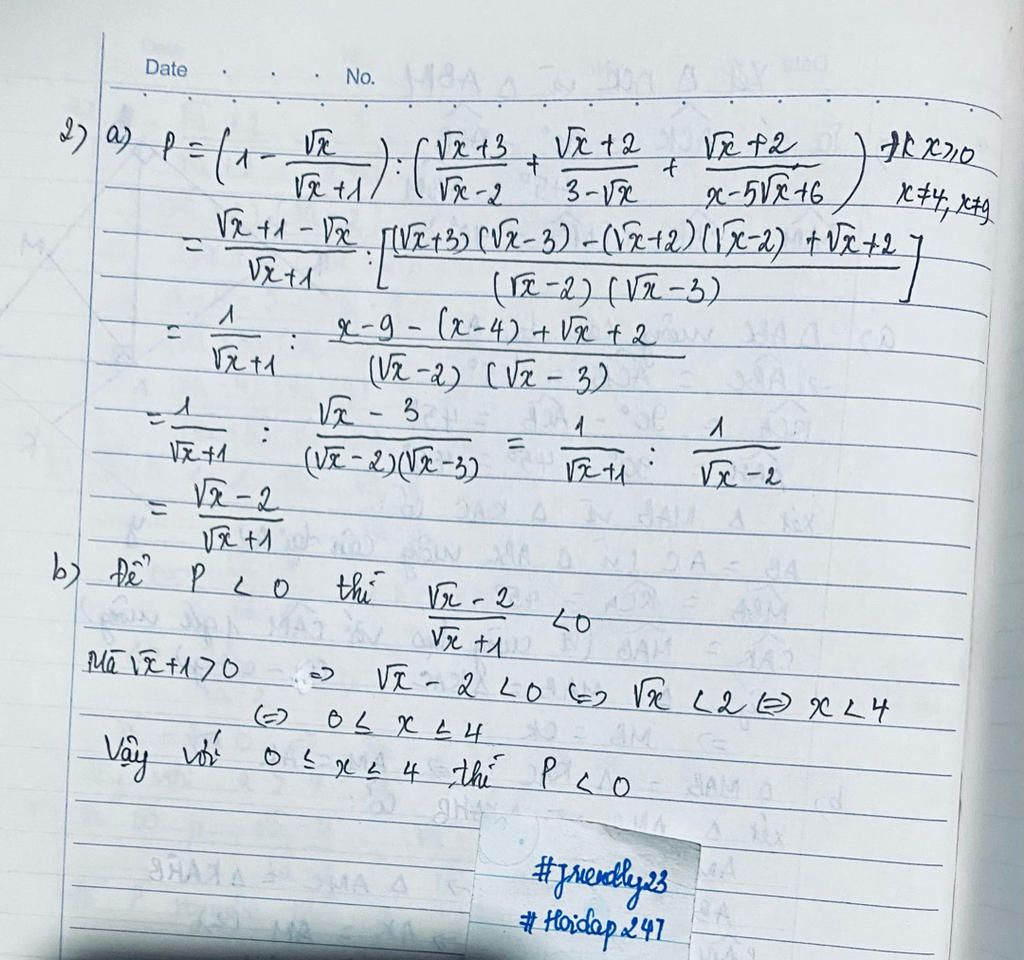 Date . . . No.
2) a) P = (1 - √x/(√x+1)) : ((√x+3)/(√x-2) + (√x+2)/(3-√x) + (√x+2)/(x-5√x+6)) ĐK x≥0
x≠4, x≠9
= (√x+1-√x)/(√x+1) : [((√x+3)(√x-3) - (√x+2)(√x-2) + √x+2)/((√x-2)(√x-3))]
= 1/(√x+1) : (x-9-(x-4)+√x+2)/((√x-2)(√x-3))
= 1/(√x+1) : (√x-3)/((√x-2)(√x-3)) = 1/(√x+1) : 1/(√x-2)
= (√x-2)/(√x+1)
b) Để P < 0 thì (√x-2)/(√x+1) < 0
Mà √x+1>0 => √x - 2 < 0 <=> √x < 2 <=> x < 4
<=> 0 ≤ x ≤ 4
Vậy với 0 ≤ x ≤ 4 thì P < 0
#friendly23
#Hoidap247